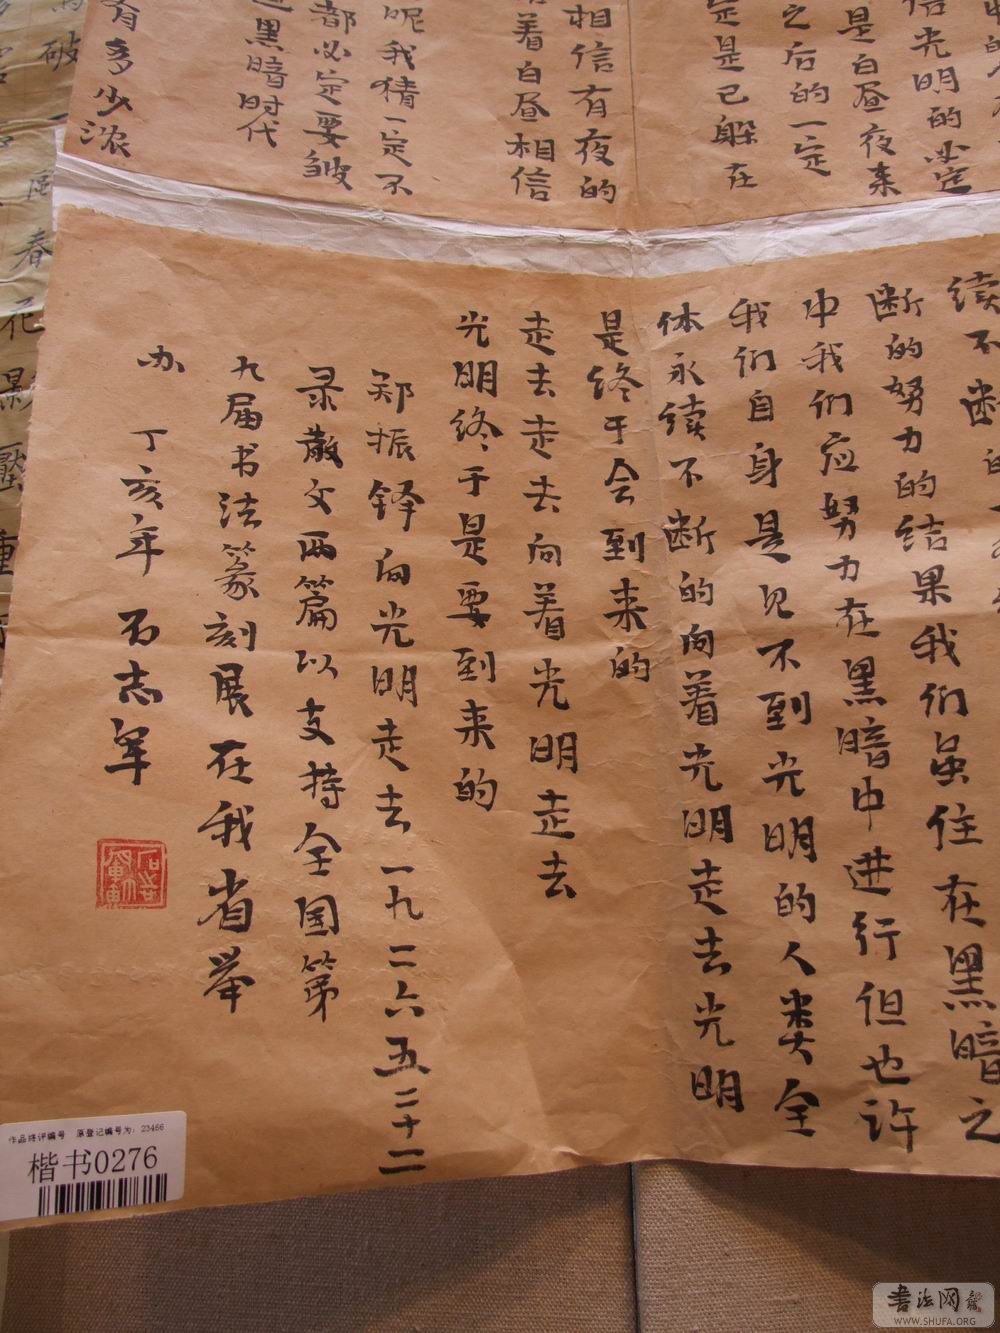 信光明的必定
是白昼夜来
之后的一定
定是已躲在
相信有夜的
着白昼相信
呢我猜一定不
都必定要皱
黑暗时代
有多少浓
续不断的
断的努力的结果我们虽住在黑暗之
中我们应努力在黑暗中进行但也许
我们自身是见不到光明的人类全
体永续不断的向着光明走去光明
是终于会到来的
走去走去向着光明走去
光明终于是要到来的
郑振铎向光明走去一九二六五二十二
录散文两篇以支持全国第
九届书法篆刻展在我省举
办 丁亥年 石志军
破
春花影壓重
作品终评编号 原登记编号为：23466
楷书0276
书法网
WWW.SHUFA.ORG